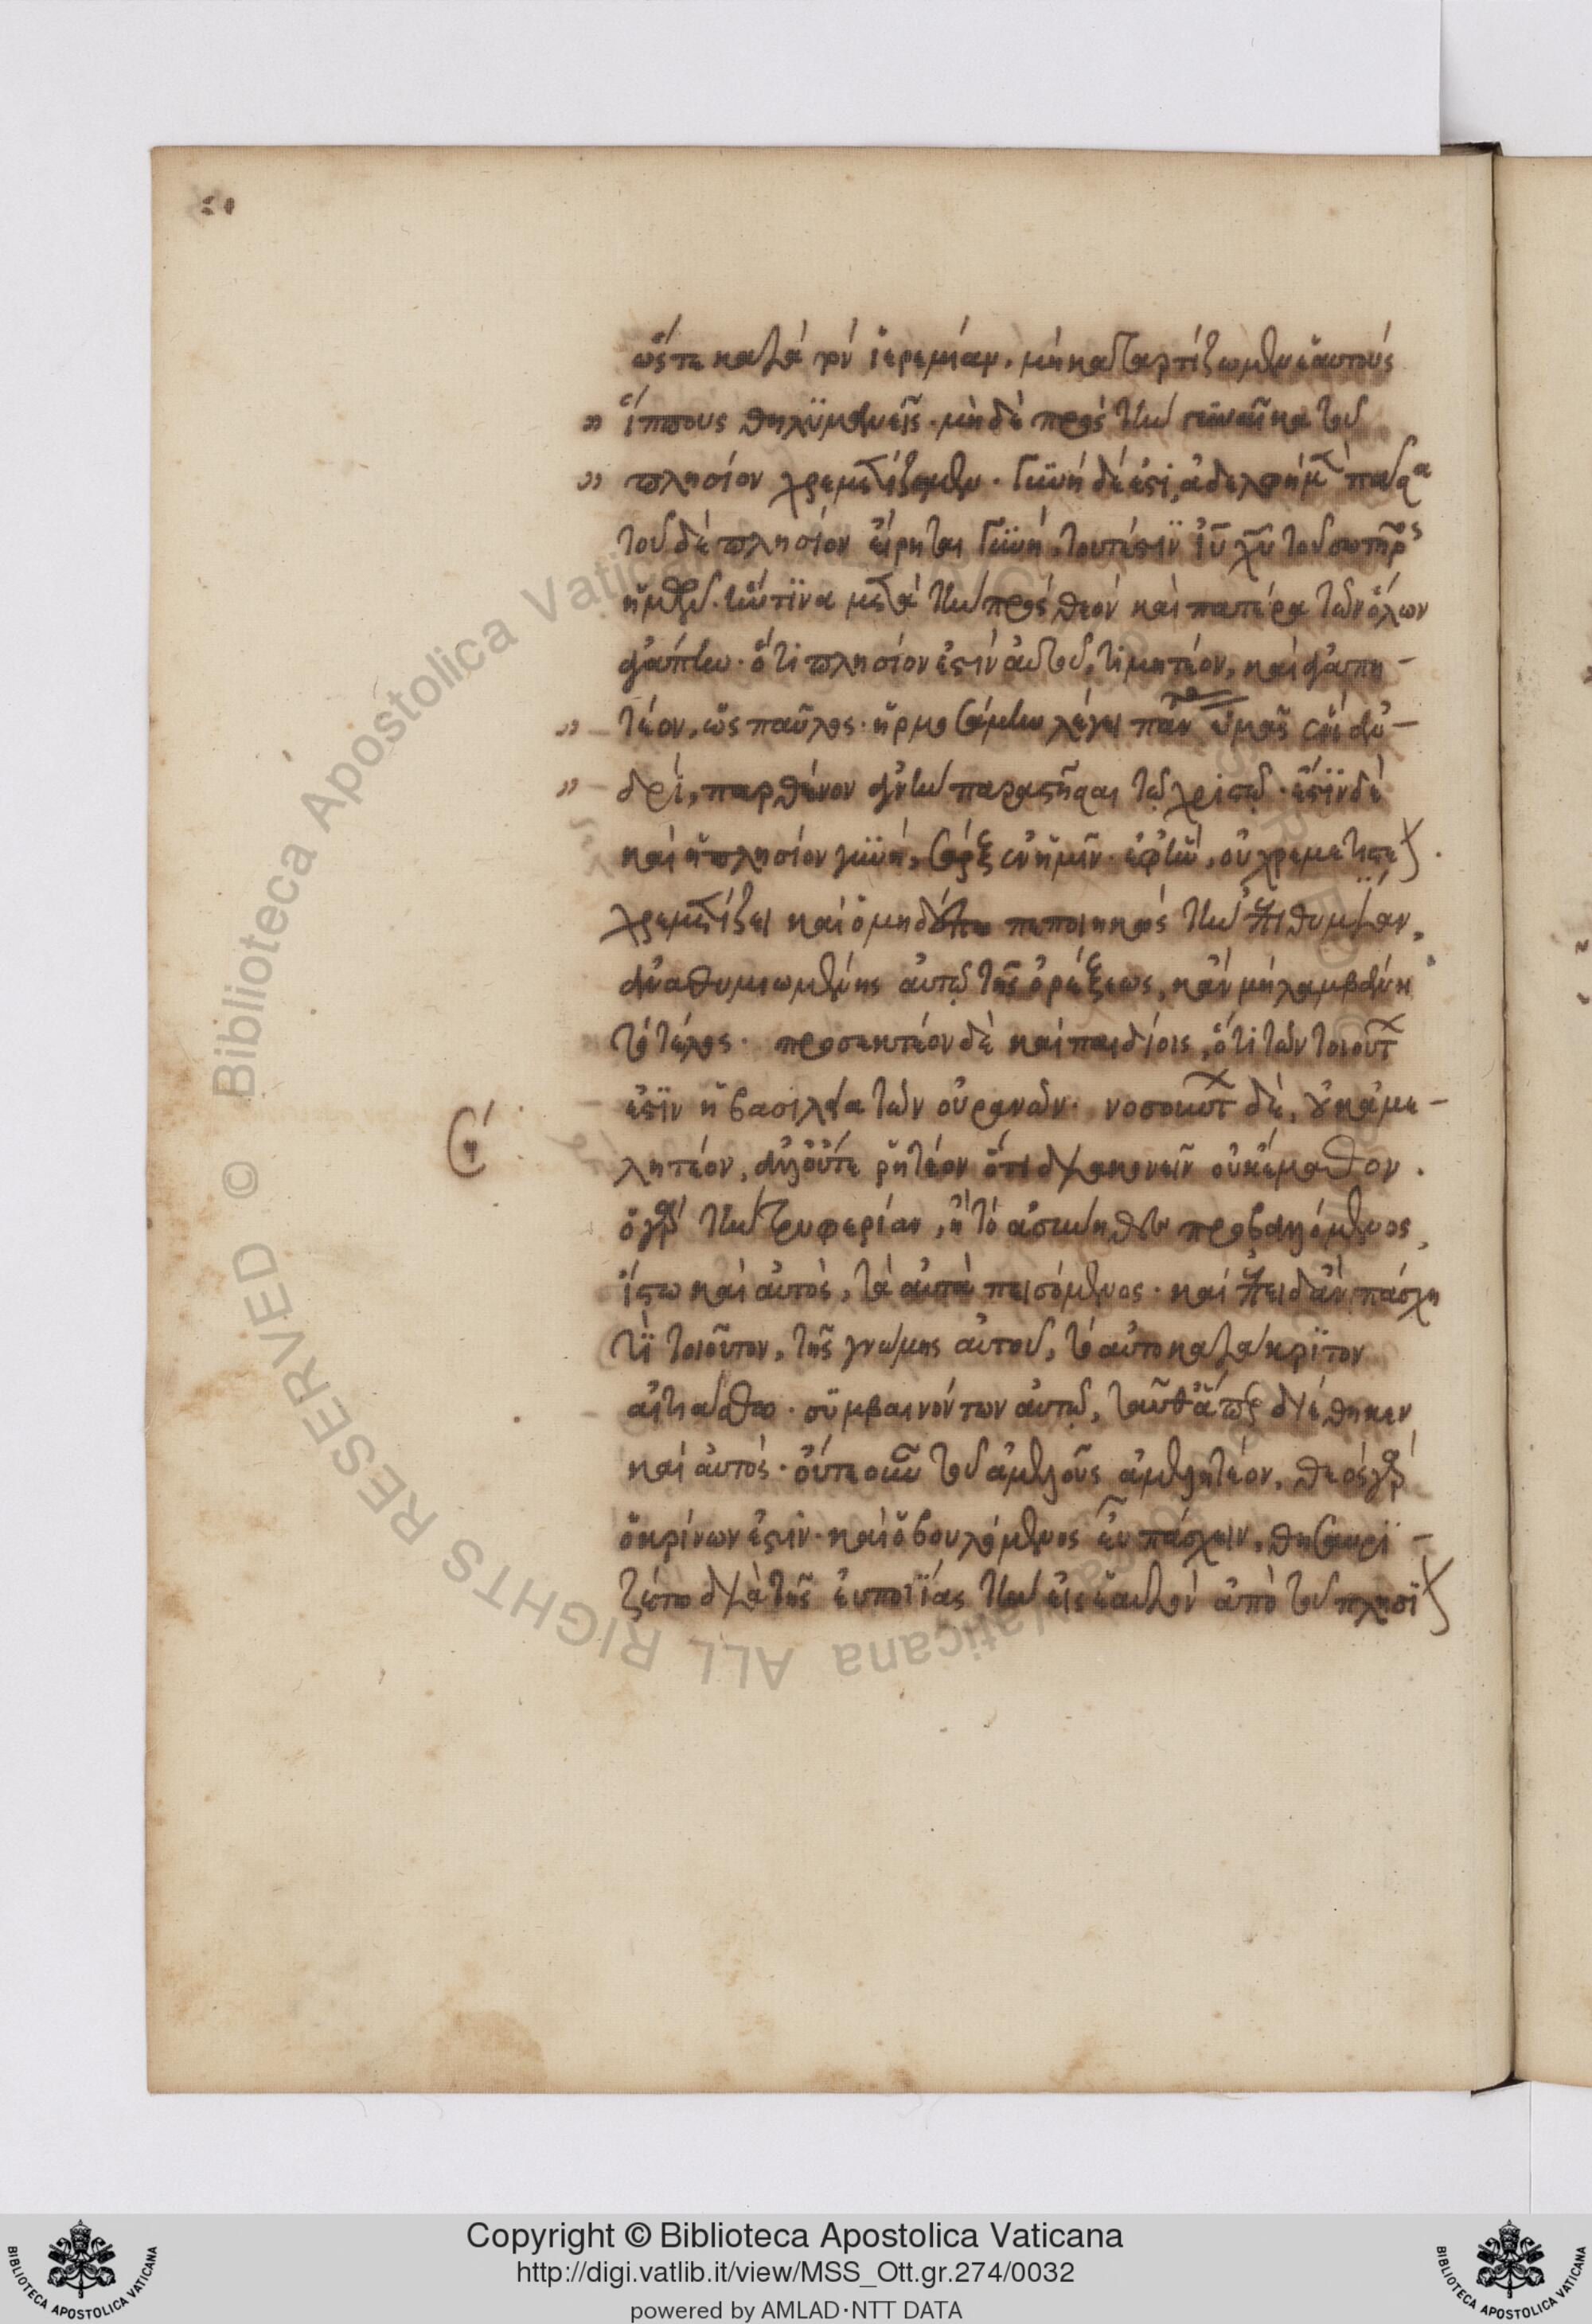 ὥστε κατὰ τὸν ἱερεμίαν. μὴ καταρτίζωμεν ἑαυτοὺς
» ἵππους θηλυμανεῖς. μὴ δὲ πρὸς τὴν γυναῖκα τοῦ
» πλησίον χρεμετίζομεν. Γυνὴ δέ ἐστι, ἀδελφὴ
τοῦ δὲ πλησίον εἴρηται Γυνὴ, τουτέστιν ἰῦ χῦ τοῦ σωτῆρος
ἡμῶν. ἥντινα μετὰ τὴν πρὸς θεὸν καὶ πατέρα τῶν ὅλων
ἀγάπην. ὅτι πλησίον ἐστὶν αὐτοῦ, τιμητέον, καὶ ἀγαπη-
» τέον, ὡς παῦλος. ἡρμοσάμην λέγει ὑμᾶς ἑνὶ ἀν-
» δρὶ, παρθένον ἁγνὴν παραστῆσαι τῷ χριστῷ. ἔστιν δὲ
καὶ ἡ πλησίον γυνὴ, σὰρξ ἐν ἡμῖν. ἐφ' ἣν, οὐ χρεμετιστέον.
χρεμετίζει καὶ ὁ μηδέπω πεποιηκὼς τὴν ἐπιθυμίαν,
ἀναθυμιωμένης αὐτῷ τῆς ὀρέξεως, κἂν μὴ λαμβάνη
τὸ τέλος. προσεκτέον δὲ καὶ παιδίοις, ὅτι τῶν τοιούτ
ἐστὶν ἡ βασιλεία τῶν οὐρανῶν. νοσούντ δὲ, οὐκ ἀμε-
λητέον, ἀλλ' οὔτε ῥητέον ὅτι διακονεῖν οὐκ ἔμαθον.
ὁ γὰρ τὴν τρυφερίαν, ἢ τὸ ἀσύνηθες προβαλλόμενος,
ἴστω καὶ αὐτὸς, τὰ αὐτὰ πεισόμενος. καὶ ἐπειδὰν πάσχη
τὶ τοιοῦτον, τῆς γνώμης αὐτοῦ, τὸ αὐτοκατάκριτον
αἰτιάσθω. συμβαινόντων αὐτῷ, ταῦθ' ἅπερ διέθηκεν
καὶ αὐτός. οὔτε οὖν τοῦ ἀμελοῦς ἀμελητέον, θεὸς γὰρ
ὁ κρίνων ἐστὶν. καὶ ὁ βουλόμενος εὖ πάσχειν, θησαυρι-
ζέτω διὰ τῆς εὐποιΐας τὴν εἰς ἑαυτὸν ἀπὸ τοῦ πλησί